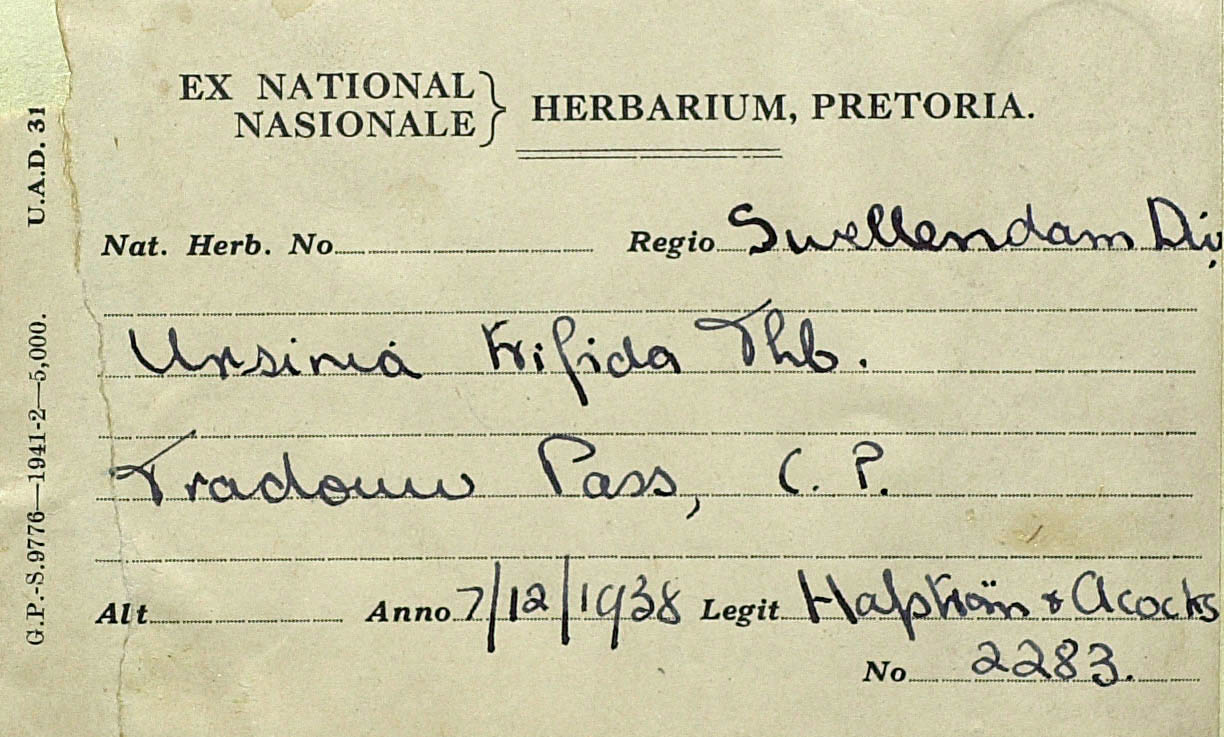 EX NATIONAL
NASIONALE } HERBARIUM, PRETORIA.
U.A.D. 31
G.P.-S.9776—1941-2—5,000.
Nat. Herb. No. Regio Swellendam Div.
Ursinia trifida Thb.
Tradouw Pass, C. P.
Alt. Anno 7/12/1938 Legit Hafström & Acocks
No 2283.